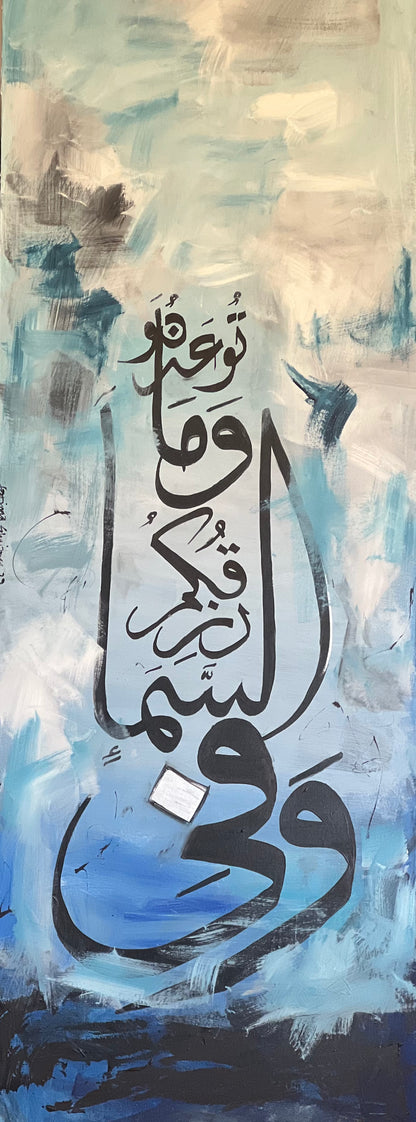 وَفي
السَّمَاءِ
رزقُكُم
وَمَا
تُوعَدُونَ